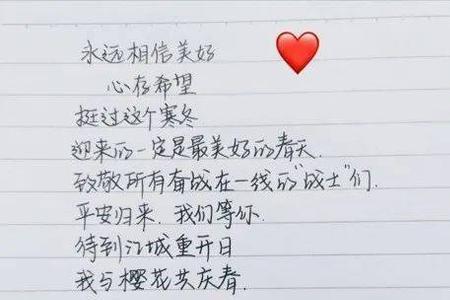 永远相信美好
心存希望
挺过这个寒冬
迎来的一定是最美好的春天.
致敬所有奋战在一线的"战士"们.
平安归来.我们等你.
待到江城重开日
我与樱花共庆春.